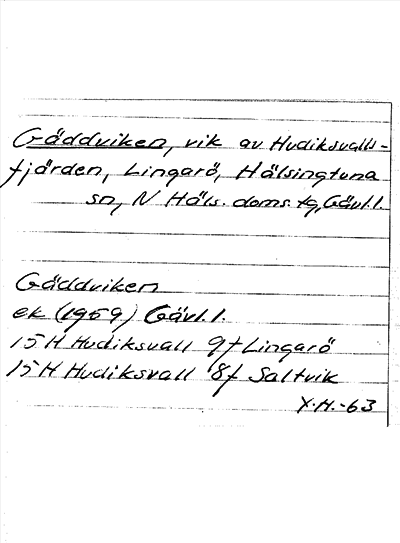 Gäddviken, vik av Hudiksvalls-
fjärden, Lingarö, Hälsingtuna
sn, N Häls. doms. tg, Gävl.l.
Gäddviken
ek (1959) Gävl.l.
15 H Hudiksvall 9f Lingarö
15 H Hudiksvall 8f Saltvik
Y.H.-63